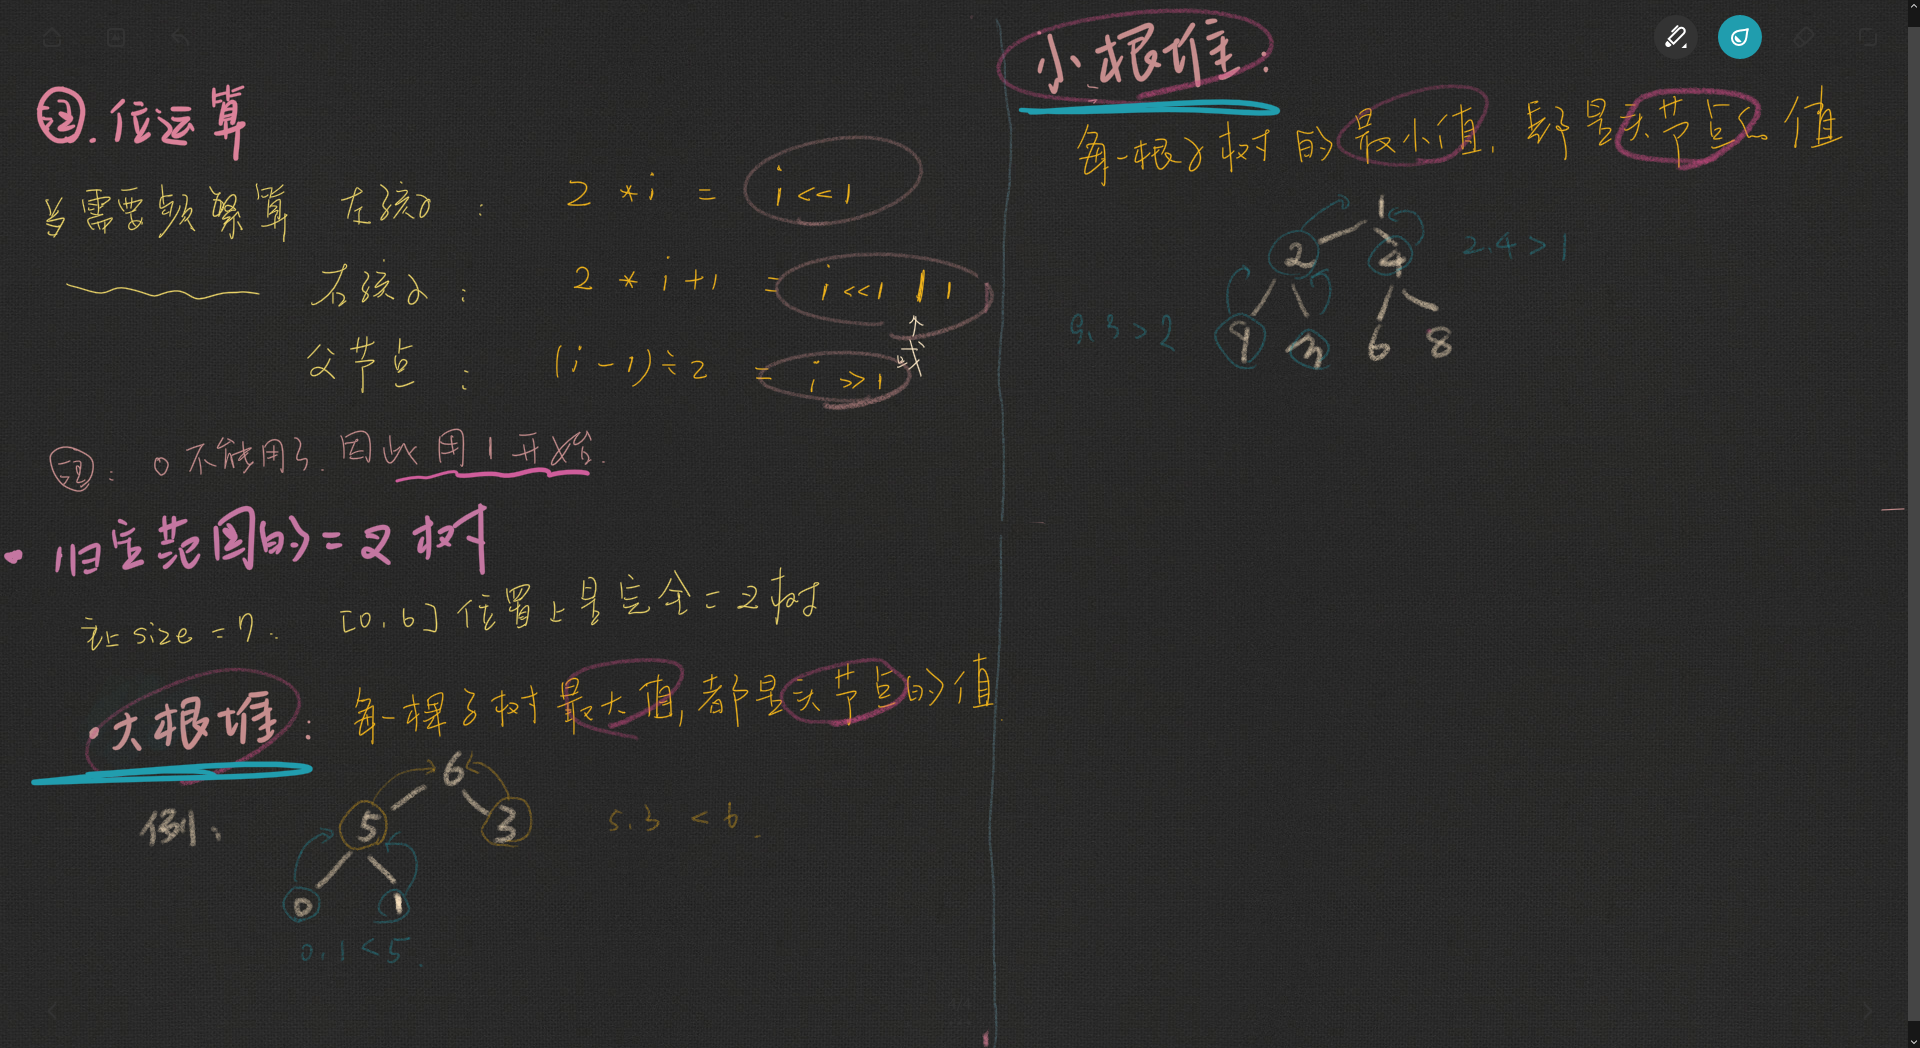 注. 位运算
当需要频繁算 左孩子 : 2 * i = i << 1
右孩子 : 2 * i + 1 = i << 1 | 1
↑
或
父节点 : (i - 1) ÷ 2 = i >> 1
注: 0 不能用了. 因此用 1 开始.
· 固定范围的=叉树
让 size = 7. [0, 6] 位置上是完全=叉树
· 大根堆 : 每一棵子树最大值, 都是头节点的值.
例:
6
5 3
5, 3 < 6.
0 1
0, 1 < 5.
小根堆:
每一根子树的最小值. 都是头节点的值
1
2 4
2, 4 > 1
9, 3 > 2
9 3 6 8